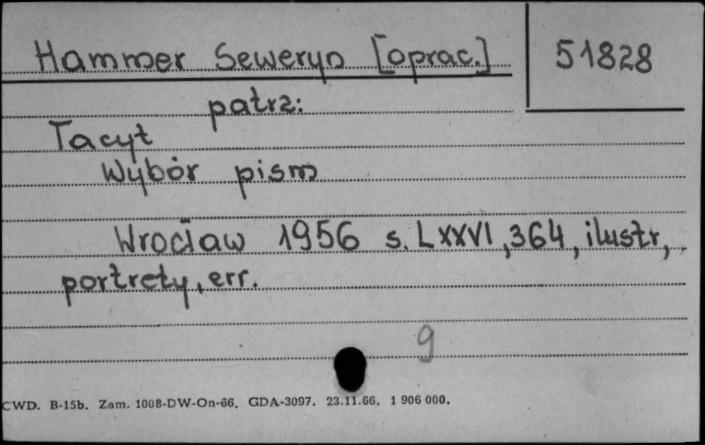 Hammer Seweryn [oprac.] 51828
patrz:
Tacyt
Wybór pism
Wrocław 1956 s. LXXVI, 364, ilustr,
portrety, err.
9
CWD. B-15b. Zam. 1008-DW-On-66. GDA-3097. 23.11.66. 1 906 000.